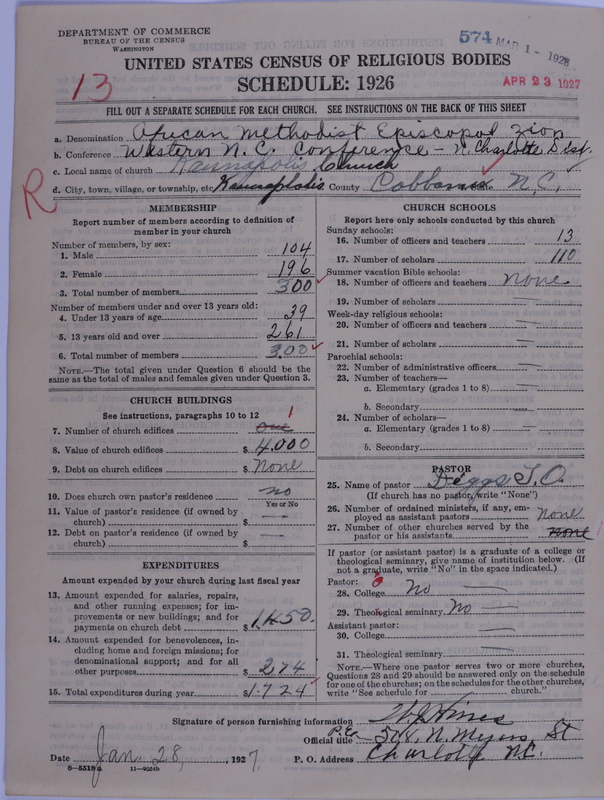 DEPARTMENT OF COMMERCE
BUREAU OF THE CENSUS
WASHINGTON
574 MAR 1 - 1928
APR 23 1927
13
UNITED STATES CENSUS OF RELIGIOUS BODIES
SCHEDULE: 1926
FILL OUT A SEPARATE SCHEDULE FOR EACH CHURCH. SEE INSTRUCTIONS ON THE BACK OF THIS SHEET
a. Denomination African Methodist Episcopal Zion
b. Conference Western N.C. Conference - N. Charlotte Dist.
c. Local name of church Kannapolis Church
R
d. City, town, village, or township, etc. Kannapolis County N.C.
MEMBERSHIP
Report number of members according to definition of
member in your church
Number of members, by sex:
1. Male 104
2. Female 196
3. Total number of members 300
Number of members under and over 13 years old:
4. Under 13 years of age 39
5. 13 years old and over 261
6. Total number of members 300
NOTE.—The total given under Question 6 should be
same as the total of males and females given under Question 3.
CHURCH BUILDINGS
See instructions, paragraphs 10 to 12
7. Number of church edifices One 1
8. Value of church edifices $ 4,000
9. Debt on church edifices $ None
10. Does church own pastor's residence no
Yes or No
11. Value of pastor's residence (if owned by
church) $ —
12. Debt on pastor's residence (if owned by
church) $ —
EXPENDITURES
Amount expended by your church during last fiscal year
13. Amount expended for salaries, repairs,
and other running expenses; for im-
provements or new buildings; and for
payments on church debt $ 1450.
14. Amount expended for benevolences, in-
cluding home and foreign missions; for
denominational support; and for all
other purposes $ 274
15. Total expenditures during year $ 1.724
CHURCH SCHOOLS
Report here only schools conducted by this church
Sunday schools:
16. Number of officers and teachers 13
17. Number of scholars 110
Summer vacation Bible schools:
18. Number of officers and teachers None
19. Number of scholars —
Week-day religious schools:
20. Number of officers and teachers —
21. Number of scholars —
Parochial schools:
22. Number of administrative officers —
23. Number of teachers—
a. Elementary (grades 1 to 8) —
b. Secondary —
24. Number of scholars—
a. Elementary (grades 1 to 8) —
b. Secondary —
PASTOR
25. Name of pastor Diggs
(If church has no pastor, write "None")
26. Number of ordained ministers, if any, em-
ployed as assistant pastors None
27. Number of other churches served by the
pastor or his assistants None
If pastor (or assistant pastor) is a graduate of a college or
theological seminary, give name of institution below. (If
not a graduate, write "No" in the space indicated.)
Pastor:
28. College No —
29. Theological seminary No —
Assistant pastor:
30. College —
31. Theological seminary —
NOTE.—Where one pastor serves two or more churches,
Questions 28 and 29 should be answered only on the schedule
for one of the churches; on the schedules for the other churches,
write "See schedule for church."
Signature of person furnishing information
Official title P.E. 508, N. Myers, St
Date Jan. 28, 1927. P. O. Address Charlotte N.C.
8—5518a 11—9054b